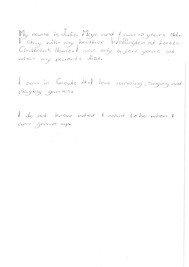 My name is Julia Moyo and I am 10 years old.
I stay with my brother Wellington at
Children's Home. I was only a few years old
when my parents died.
I am in Grade 4. I love running, singing and
playing games.
I do not know what I want to be when I
am grown up.